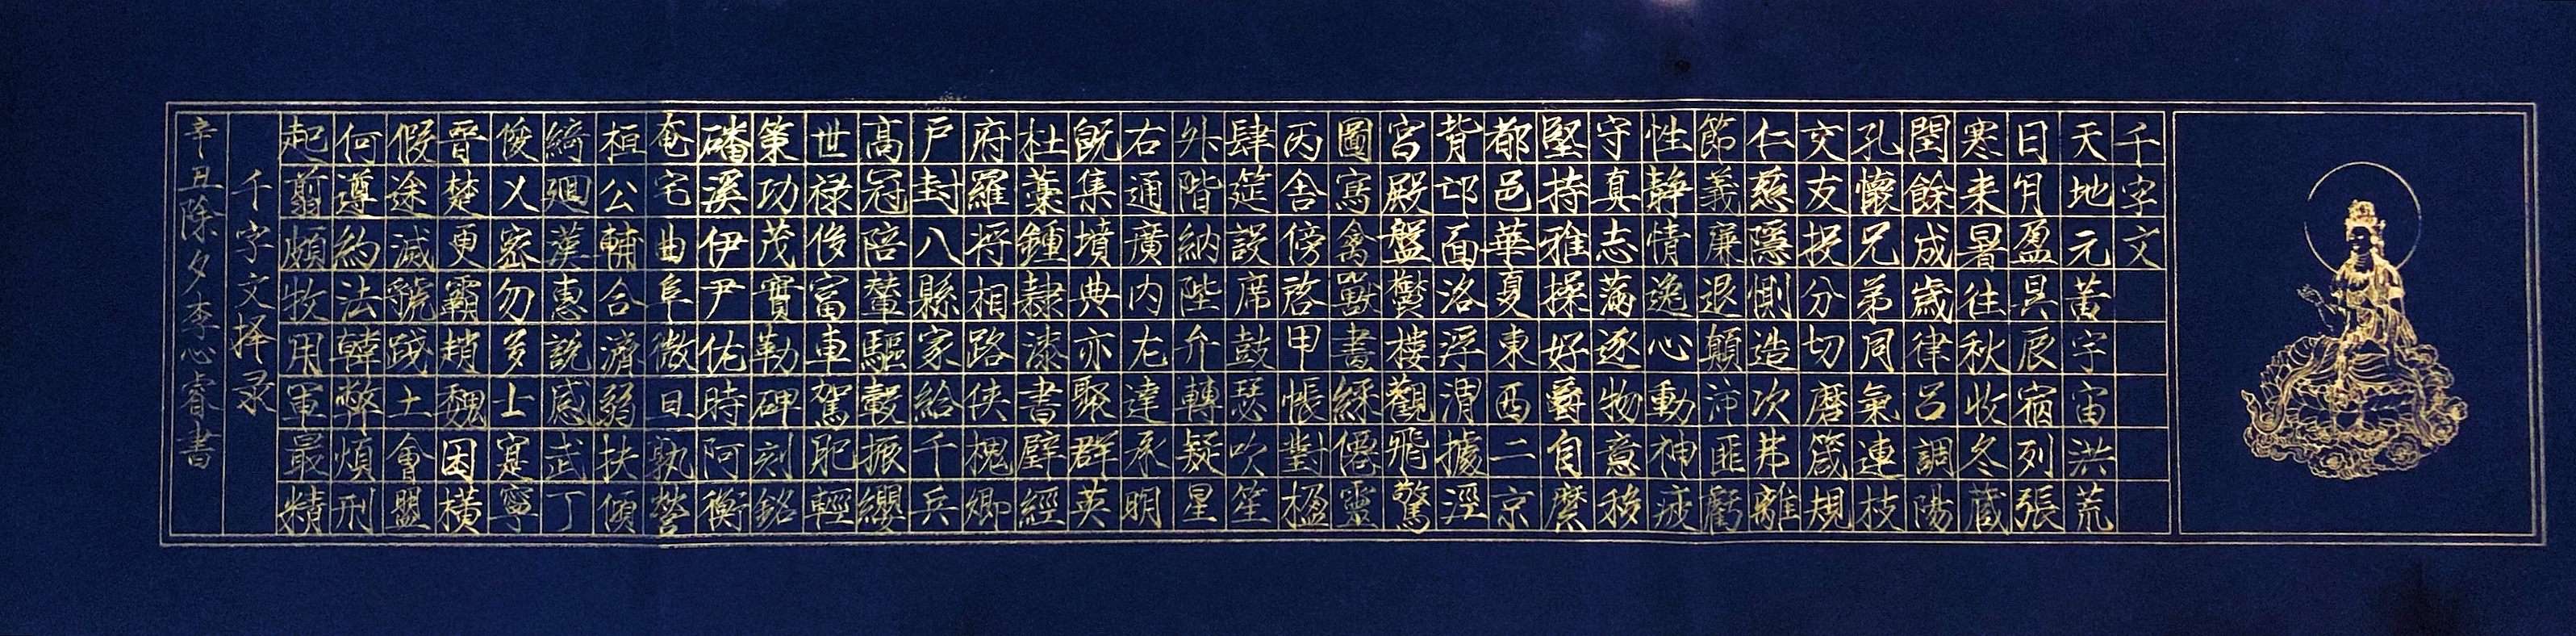 千字文
天地元黃宇宙洪荒
日月盈昃辰宿列張
寒来暑往秋收冬蔵
閏餘成歲律呂調陽
孔懷兄弟同氣連枝
交友投分切磨箴規
仁慈隱惻造次弗離
節義廉退顛沛匪虧
性静情逸心動神疲
守真志滿逐物意移
堅持雅操好爵自縻
都邑華夏東西二京
背邙面洛浮渭據涇
宮殿盤鬱樓觀飛驚
圖寫禽獸畫綵僊靈
丙舍傍啓甲帳對楹
肆筵設席鼓瑟吹笙
外階納陛弁轉疑星
右通廣内左達承明
既集墳典亦聚群英
杜藁鍾隸漆書壁經
府羅将相路俠槐卿
戶封八縣家給千兵
高冠陪輦驅轂振纓
世禄侈富車駕肥輕
策功茂實勒碑刻銘
磻溪伊尹佐時阿衡
奄宅曲阜微旦孰營
桓公輔合濟弱扶傾
綺迴漢惠説感武丁
俊乂密勿多士寔寧
晉楚更霸趙魏困橫
假途滅虢踐土會盟
何遵約法韓弊煩刑
起翦頗牧用軍最精
千字文择录
辛丑除夕李心睿書